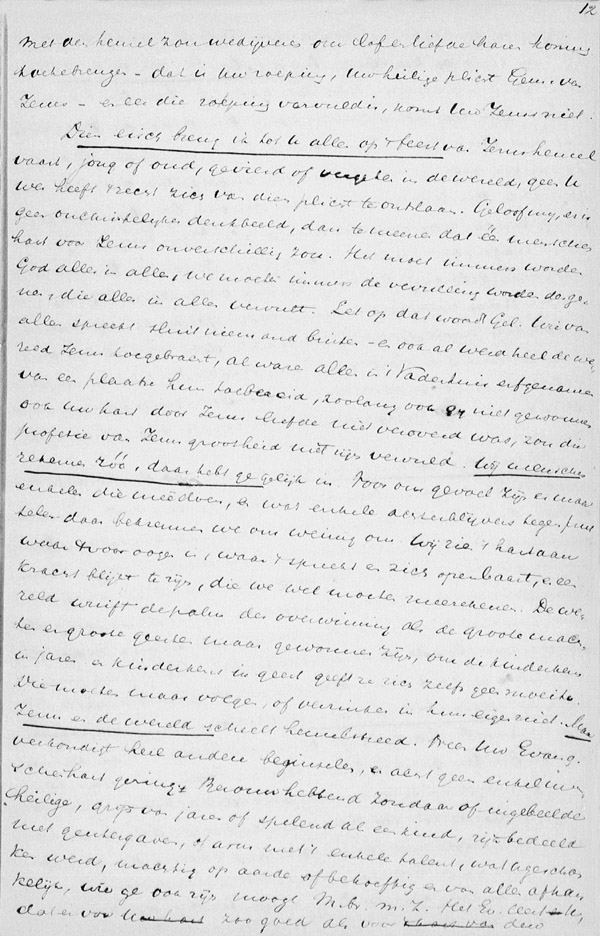 12
met den hemel zou wedijveren om lof en liefde haren koning
toetebrengen - dat is uw roeping, Uw heilige plicht Gem. van
Jezus - en eer die roeping vervuld is, komt Uw Jezus niet.
Dien eisch breng ik tot U allen op 't feest van Jezus hemel
vaart, jong of oud, gevierd of vergeten in de wereld, geen U
wer heeft 't recht zich van dien plicht te ontslaan. Geloof mij, er is
geen onchristelijker denkbeeld, dan te meenen dat één menschen
hart voor Jezus onverschillig zou. Het moet immers worden
God alles in allen, we moeten immers de vervulling worden desge
nen, die alles in allen vervult. Let op dat woord Gel. Wie van
allen spreekt sluit niemand buiten - en ook al werd heel de we
reld Jezus toegebracht, al ware allen in 't Vaderhuis erfgenamen
van een plaatse hun toebereid, zoolang ook gij niet gewonnen
ook uw hart door Jezus liefde niet veroverd was, zou die
profetie van Jezus grootheid niet zijn vervuld. Wij menschen
rekenen zóó, daar hebt ge gelijk in. Voor ons gevoel zijn er maar
enkelen die meêdoen, en wat enkele achterblijvers tegen
daar bekennen we ons weinig om. Wij zien 't hart aan
waar 't voor oogen is, waar 't spreekt en zich openbaart, en een
kracht blijkt te zijn, die we wel moeten meerekenen. De we
reld wuift de palm der overwinning als de groote mach
ten en groote geesten maar gewonnen zijn, om de kinderkens
in jaren en kinderkens in geest geeft ze zich zelfs geen moeite.
Die moeten maar volgen, of verzinken in hun eigen niet. Maar
Jezus en de wereld scheelt hemelsbreed. Neen Uw Evang.
verkondigt heel andere beginselen, en acht geen enkel men
schenhart gering. Berouwhebbend zondaar of ingebeelde
heilige, grijs van jaren of spelend als een kind, rijk bedeeld
met geestesgaven, of arm met 't enkele talent, wat u geschon
ken werd, machtig op aarde of behoeftig en van allen afhan
kelijk, wie ge ook zijn moogt M. br. m. Z. Het Ev. leert u,
dat er voor Uw hart zoo goed als voor 't hart van den